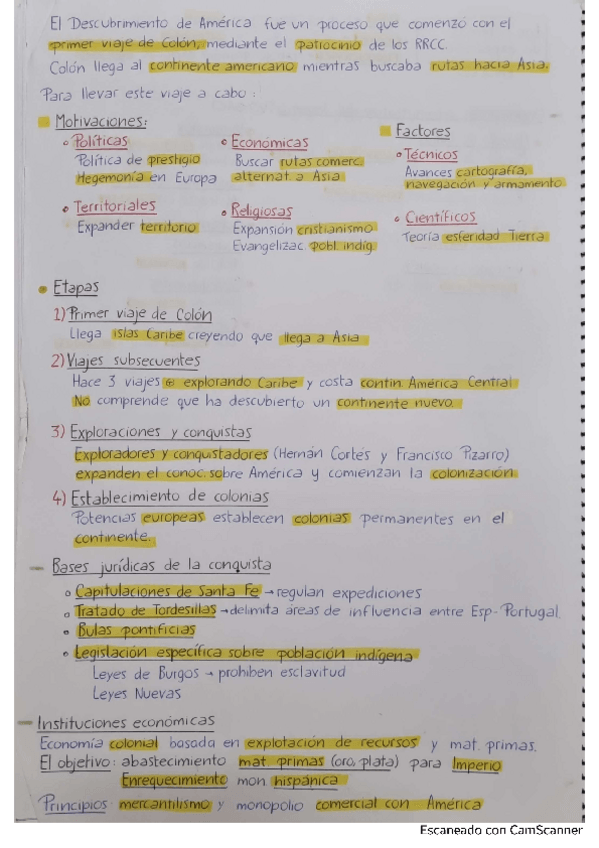 El Descubrimiento de América fue un proceso que comenzó con el
primer viaje de Colón, mediante el patrocinio de los RRCC.
Colón llega al continente americano mientras buscaba rutas hacia Asia.
Para llevar este viaje a cabo:
Motivaciones:
• Políticas
Política de prestigio
Hegemonía en Europa
• Económicas
Buscar rutas comerc.
alternat a Asia
• Territoriales
Expander territorio
• Religiosas
Expansión cristianismo
Evangelizac pobl indig.
Factores
• Técnicos
Avances cartografía,
navegación y armamento
• Científicos
Teoría esferidad Tierra
• Etapas
1) Primer viaje de Colón
Llega islas Caribe creyendo que llega a Asia
2) Viajes subsecuentes
Hace 3 viajes ⊕ explorando Caribe y costa contin. América Central
No comprende que ha descubierto un continente nuevo.
3) Exploraciones y conquistas
Exploradores y conquistadores (Hernán Cortés y Francisco Pizarro)
expanden el conoc. sobre América y comienzan la colonización
4) Establecimiento de colonias
Potencias europeas establecen colonias permanentes en el
continente.
— Bases jurídicas de la conquista
• Capitulaciones de Santa Fe → regulan expediciones
• Tratado de Tordesillas → delimita áreas de influencia entre Esp-Portugal.
• Bulas pontificias
• Legislación específica sobre población indígena
Leyes de Burgos → prohiben esclavitud
Leyes Nuevas
— Instituciones económicas
Economía colonial basada en explotación de recursos y mat. primas.
El objetivo: abastecimiento mat. primas (oro, plata) para Imperio
Enrequecimiento mon. hispánica
Principios: mercantilismo y monopolio comercial con América
Escaneado con CamScanner